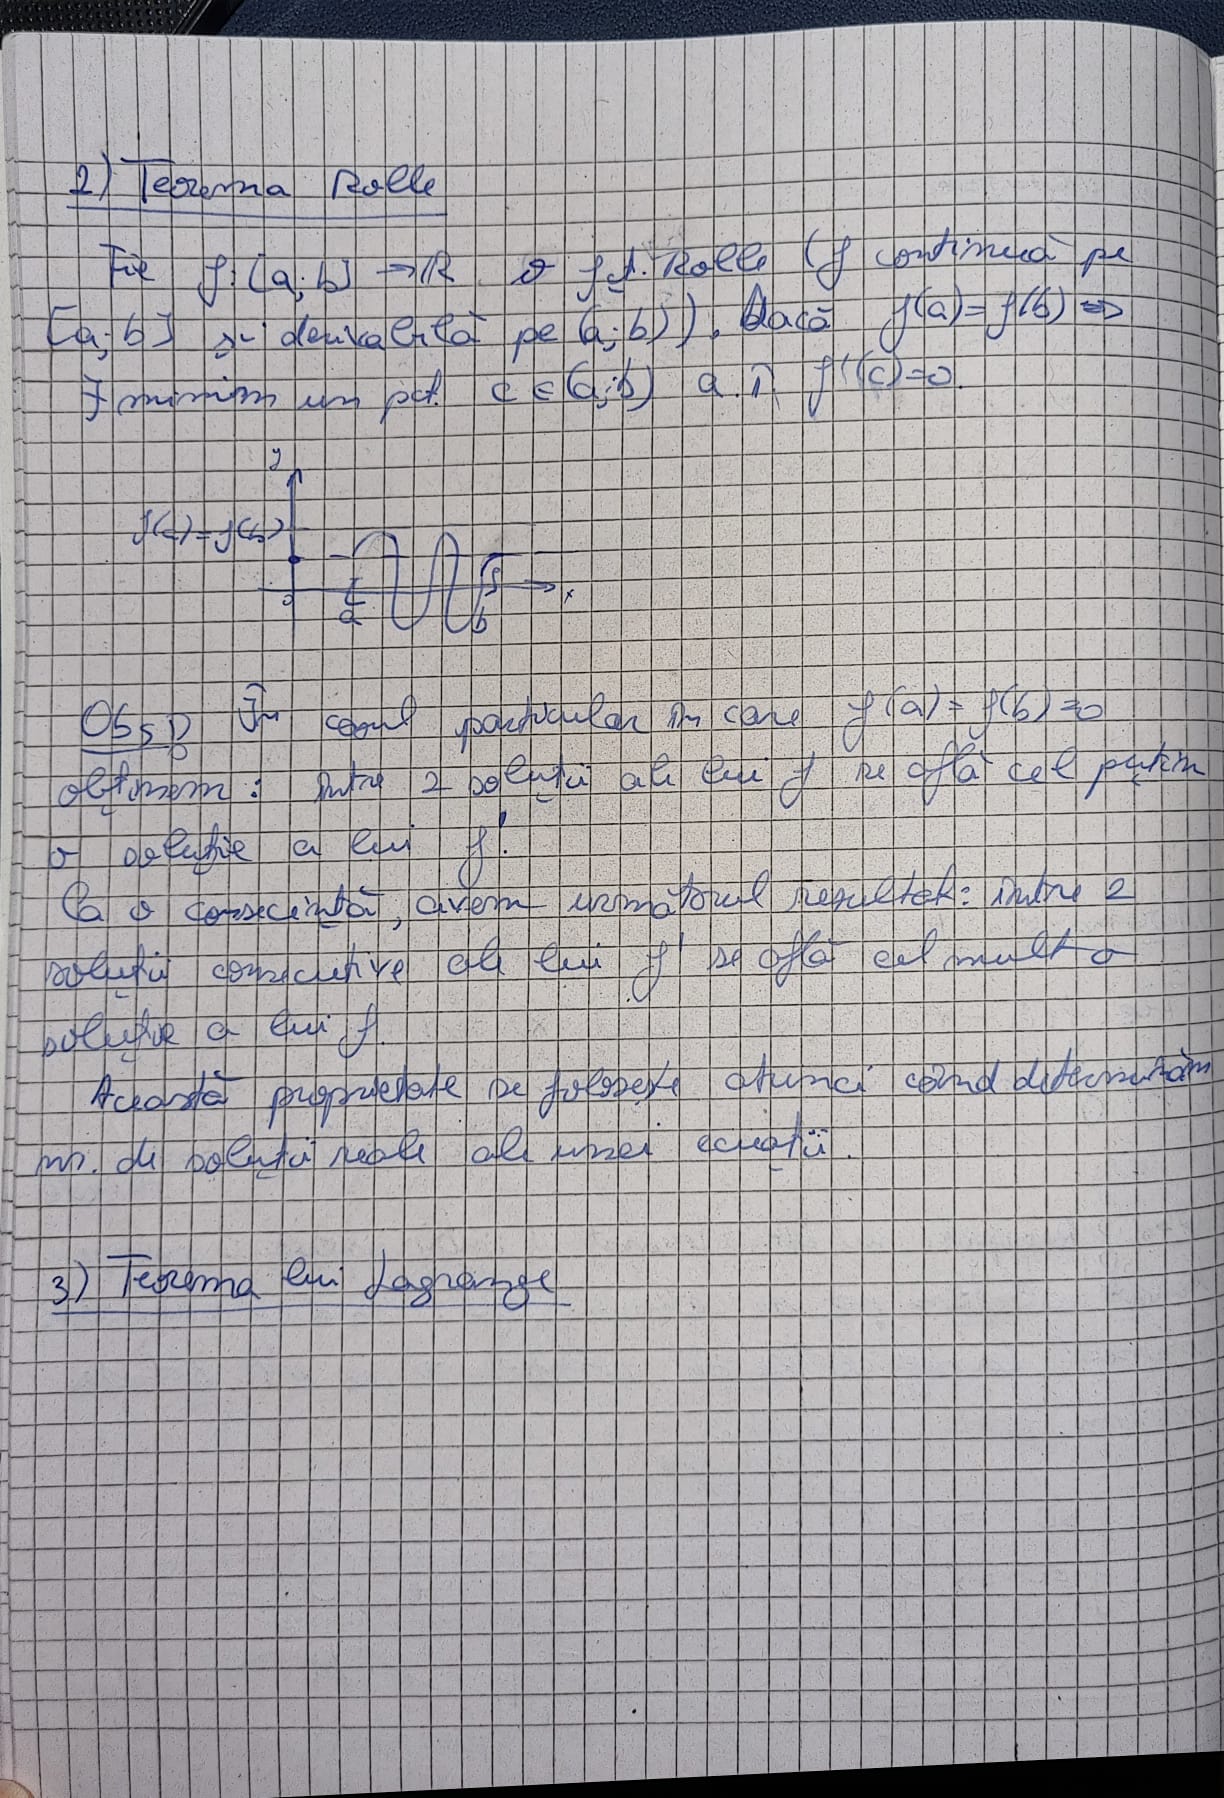 2) Teorema Rolle
Fie f:[a;b] → ℝ o fct. Rolle (f continuă pe
[a;b] și derivabilă pe (a;b)). Dacă f(a)=f(b) ⇒
∃ minim un pct. c∈(a;b) a.î. f'(c)=0.
y
f(a)=f(b)
0 a b x
Obs! În cazul particular în care f(a)=f(b)=0
obținem: între 2 soluții ale lui f se află cel puțin
o soluție a lui f'.
Ca o consecință, avem următorul rezultat: între 2
soluții consecutive ale lui f' se află cel mult o
soluție a lui f.
Această proprietate se folosește atunci când determinăm
nr. de soluții reale ale unei ecuații.
3) Teorema lui Lagrange